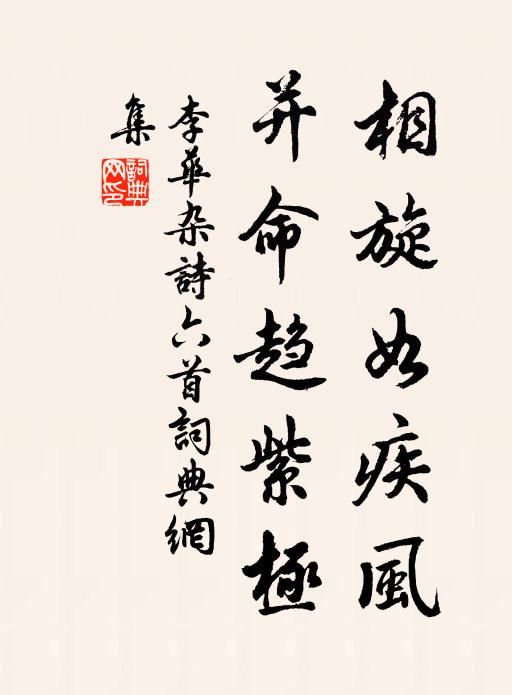 相旋如疾風
并命趨紫極
李華杂詩六首詞典網
集
詞典网印